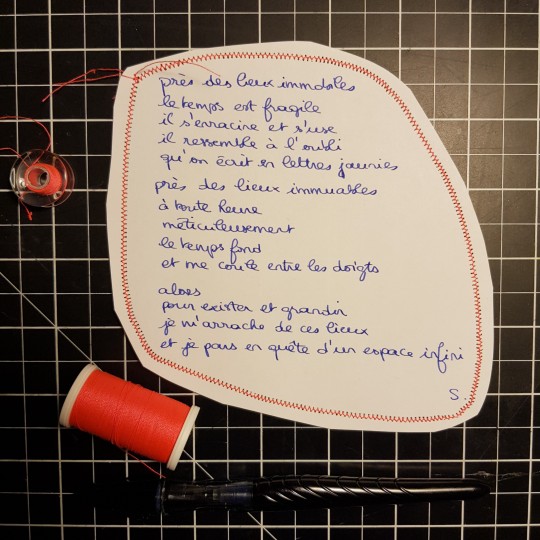 près des lieux immobiles
le temps est fragile
il s'enracine et s'use
il ressemble à l'oubli
qu'on écrit en lettres jaunies
près des lieux immuables
à toute heure
méticuleusement
le temps fond
et me coule entre les doigts
alors
pour exister et grandir
je m'arrache de ces lieux
et je pars en quête d'un espace infini
S.